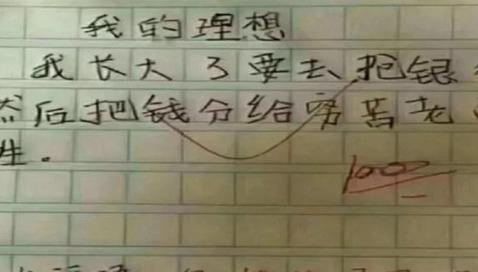 我的理想
我长大了要去抢银
然后把钱分给穷苦老
生。
100